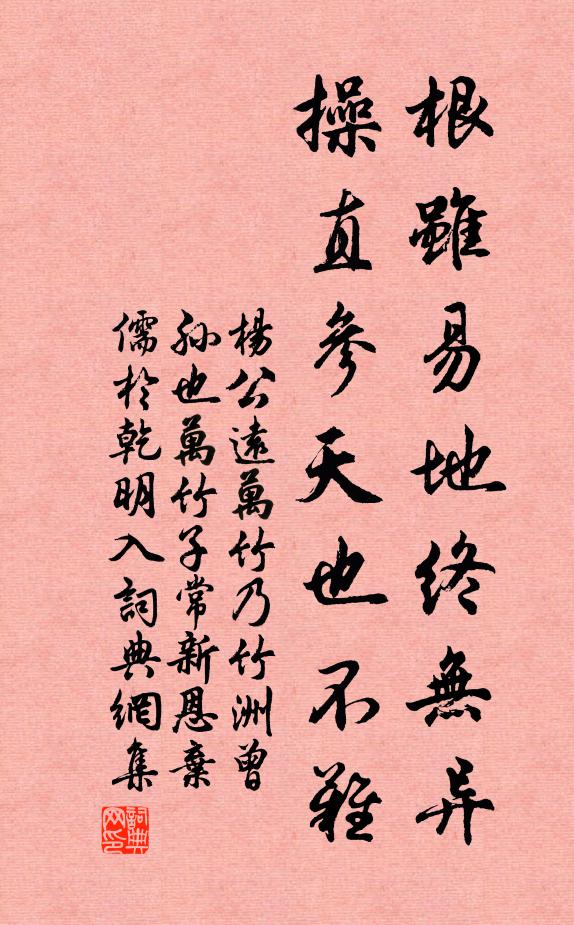 根雖易地終無异
操直參天也不難
楊公遠萬竹乃竹洲曾
孫也萬竹子常新恩棄
儒於乾明入詞典網集
詞典网印